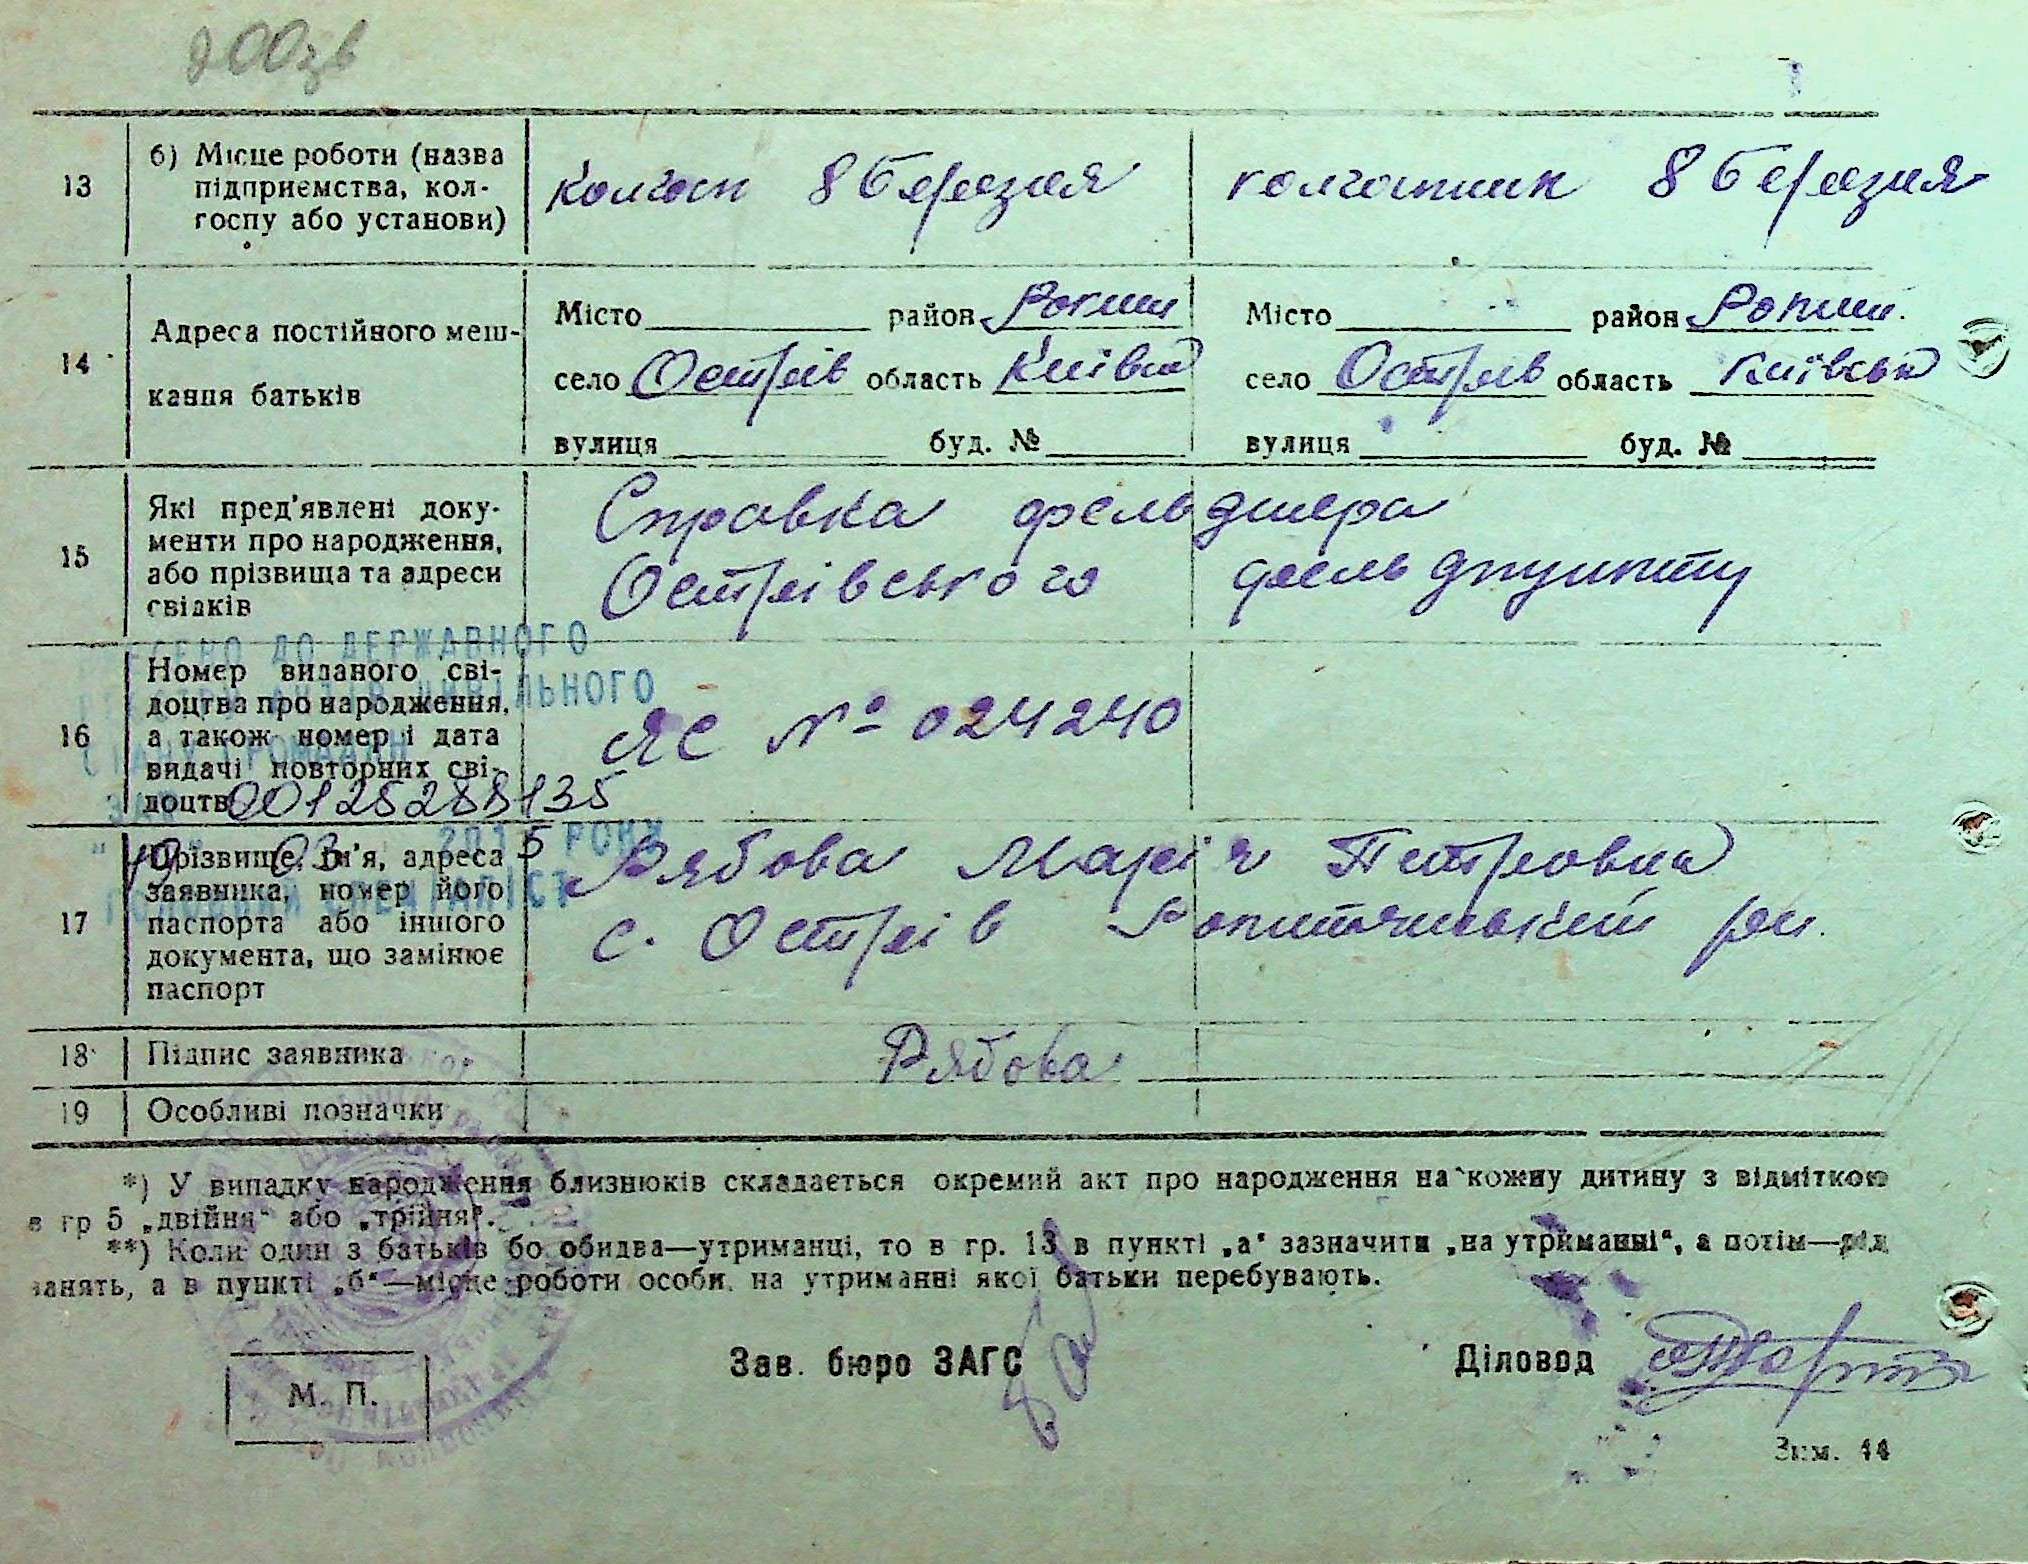 13 б) Місце роботи (назва підприємства, колгоспу або установи) колгосп 8 березня колгоспник 8 березня
14 Адреса постійного мешкання батьків
Місто район Рокитн Місто район Рокитн.
село Острів область Київськ село Острів область Київськ
вулиця буд. № вулиця буд. №
15 Які пред'явлені документи про народження, або прізвища та адреси свідків
Справка фельдшера
Острівського фельдпункту
ДО ДЕРЖАВНОГО
ЦИВІЛЬНОГО
ГРОМАДЯН
16 Номер виданого свідоцтва про народження, а також номер і дата видачі повторних свідоцтв
ЯС № 024240
00125288135
19 03 2015 РОКУ
ГОЛОВНИЙ СПЕЦІАЛІСТ
17 Прізвище, ім'я, адреса заявника, номер його паспорта або іншого документа, що замінює паспорт
Рябова Марія Петровна
с. Острів Рокитнянський рн.
18 Підпис заявника Рябова
19 Особливі позначки
*) У випадку народження близнюків складається окремий акт про народження на кожну дитину з відміткою
в гр 5 „двійня" або „трійня".
**) Коли один з батьків бо обидва—утриманці, то в гр. 13 в пункті „а" зазначити „на утриманні", а потім—рід
занять, а в пункті „б"—місце роботи особи, на утриманні якої батьки перебувають.
Зав. бюро ЗАГС Діловод
М. П.
Зим. 44